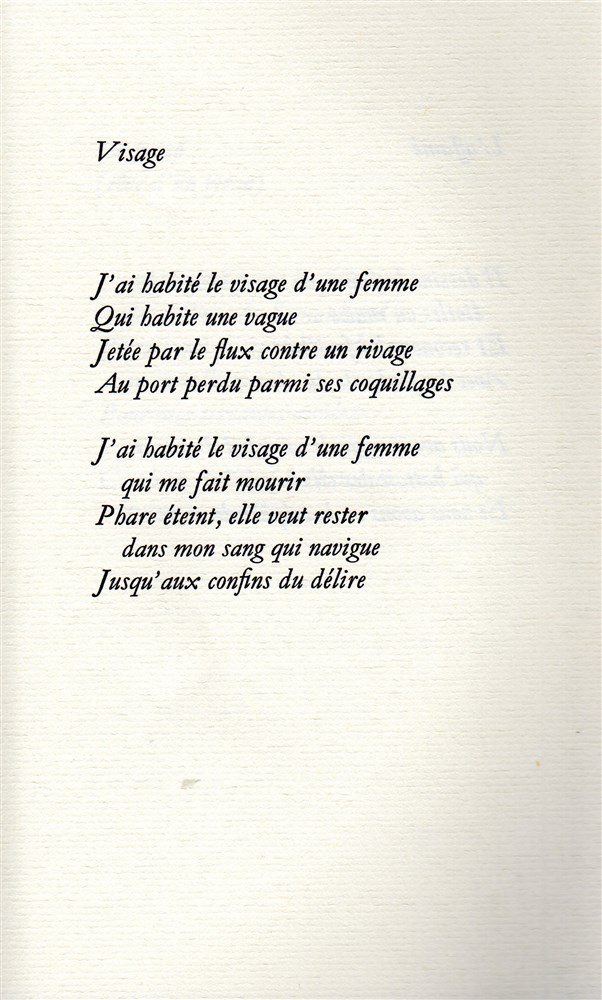 Visage
J'ai habité le visage d'une femme
Qui habite une vague
Jetée par le flux contre un rivage
Au port perdu parmi ses coquillages
J'ai habité le visage d'une femme
qui me fait mourir
Phare éteint, elle veut rester
dans mon sang qui navigue
Jusqu'aux confins du délire